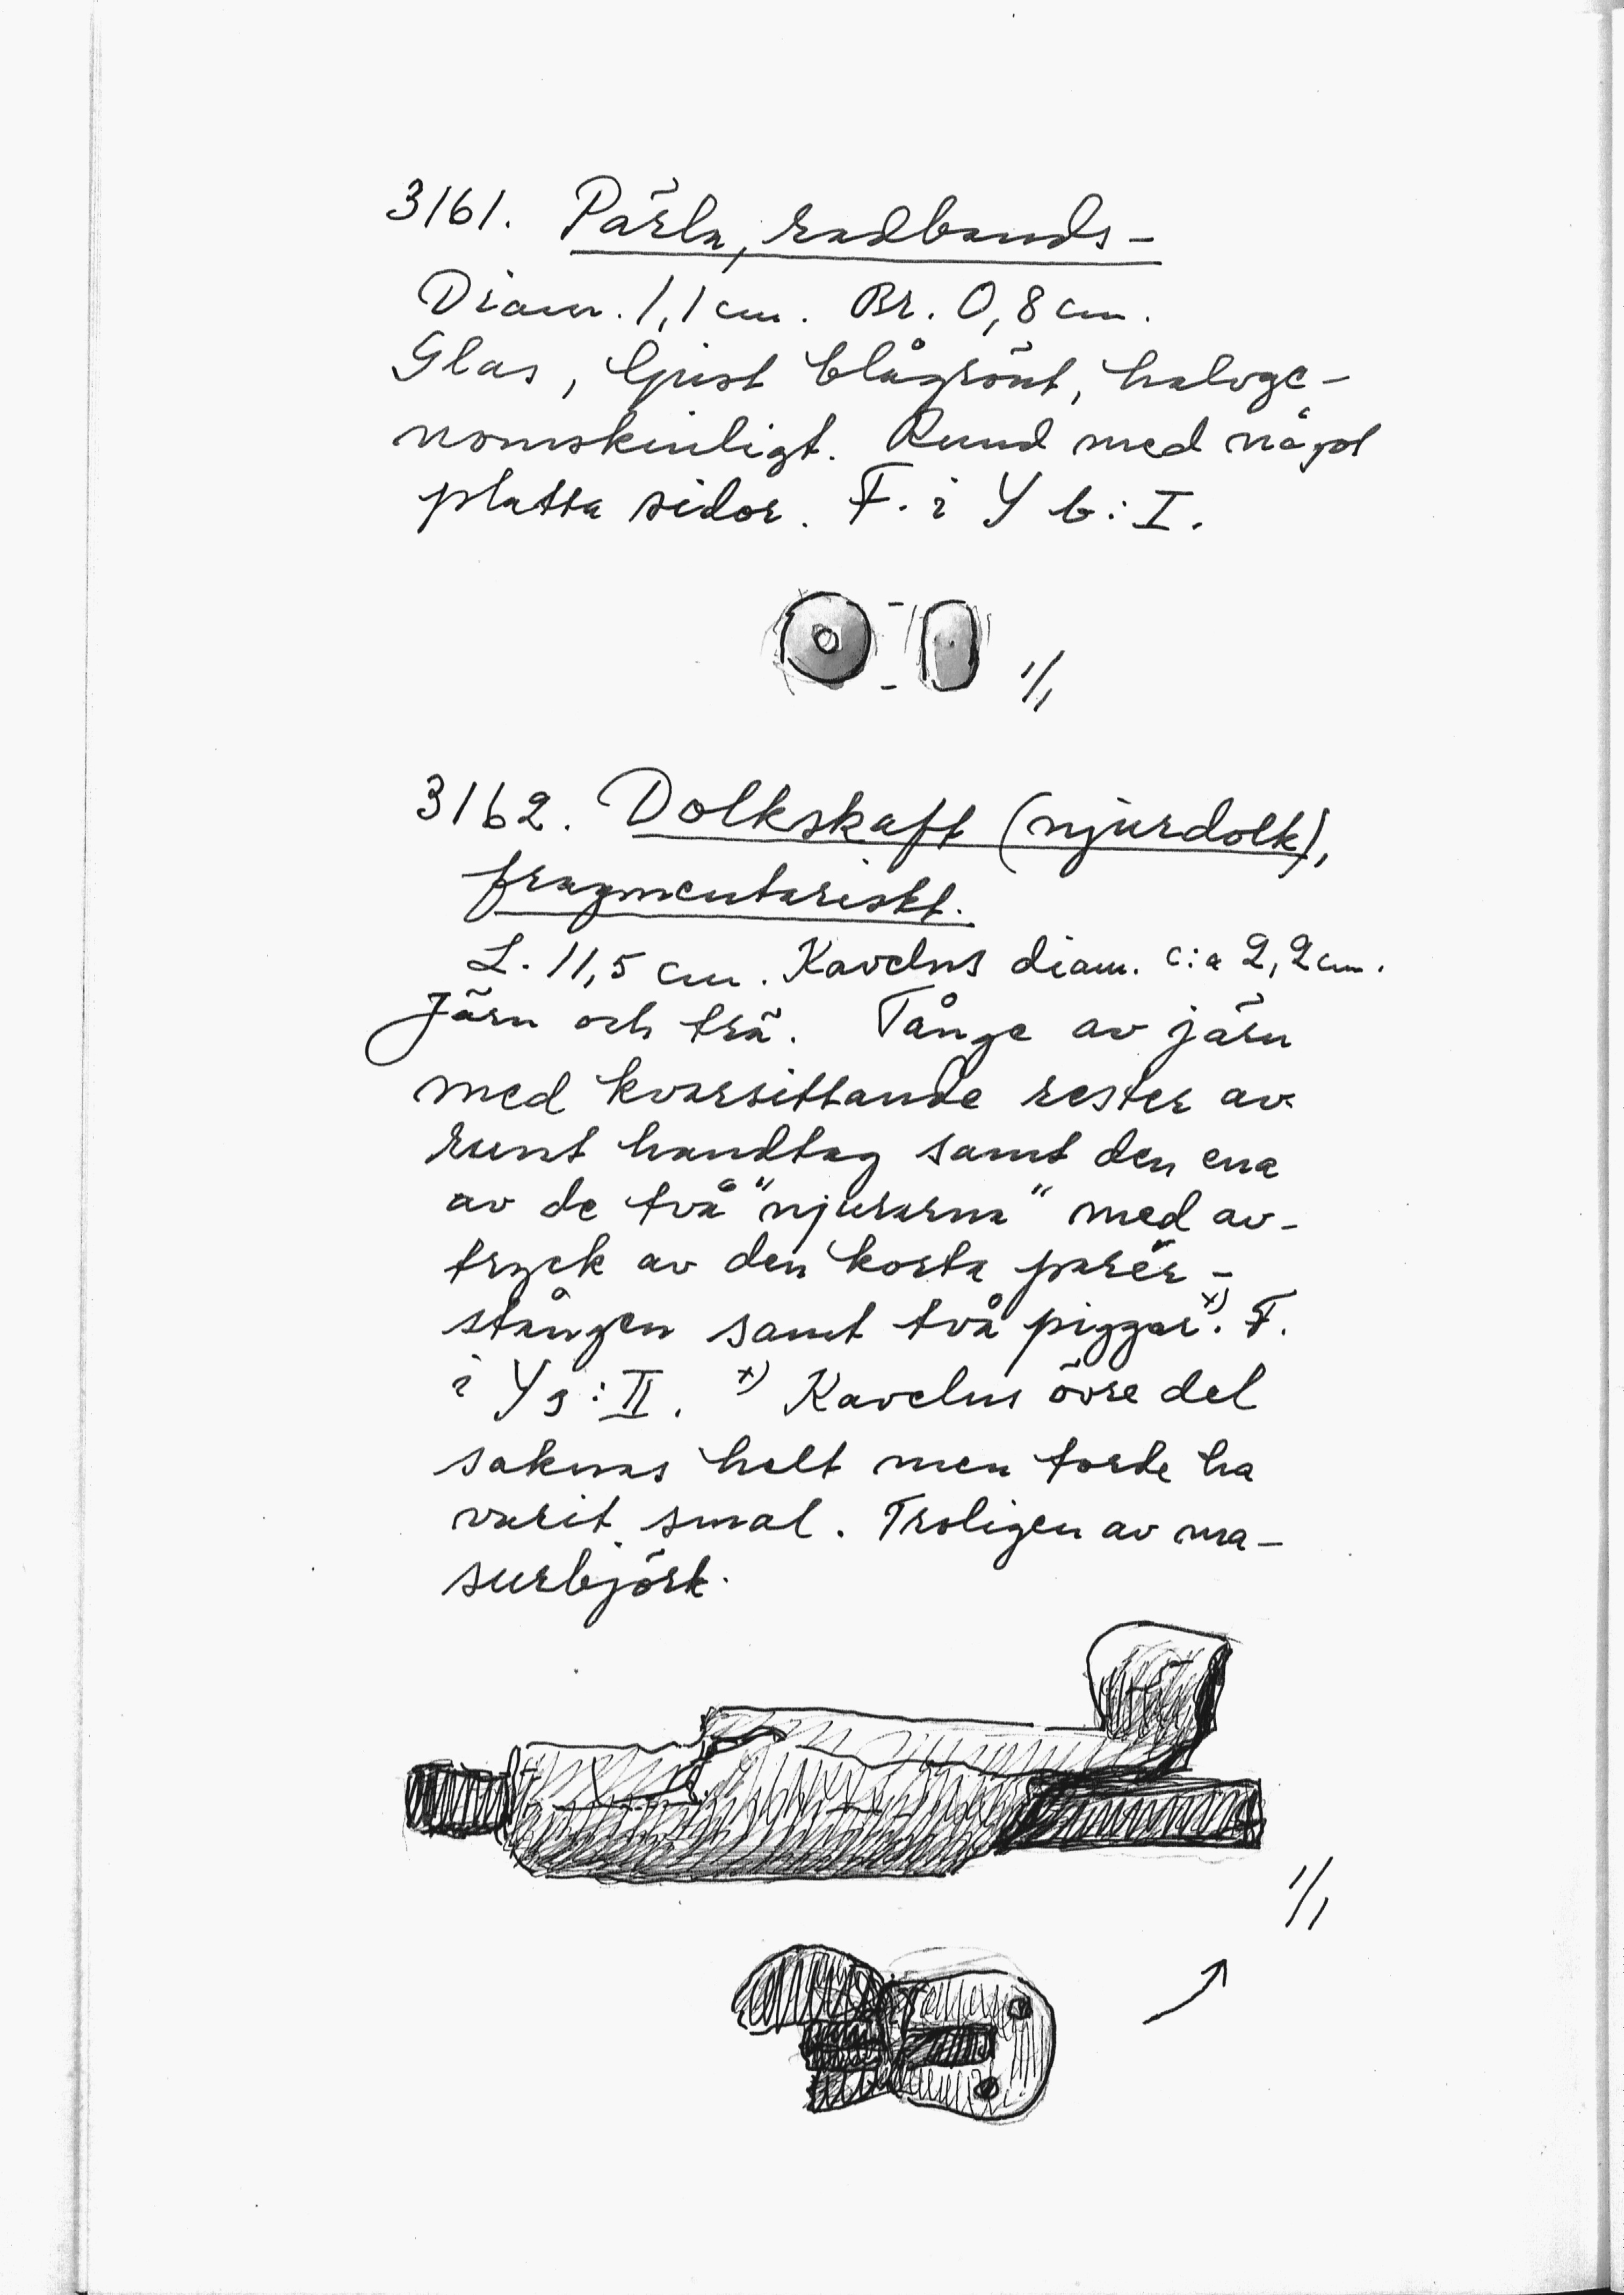 3161. Pärla, radbands-
Diam. 1,1 cm. Br. 0,8 cm.
Glas, ljust blågrönt, halvge-
nomskinligt. Rund med något
platta sidor. F. i Y b: I.
1/1
3162. Dolkskaft (njurdolk),
fragmentariskt.
L. 11,5 cm. Kavelns diam. c:a 2,2 cm.
Järn och trä. Tånge av järn
med kvarsittande rester av
runt handtag samt den ena
av de två "njurarna" med av-
tryck av den korta parér-
stången samt två piggar x). F.
i Y : II. x) Kavelns övre del
saknas helt men torde ha
varit smal. Troligen av ma-
surbjörk.
1/1